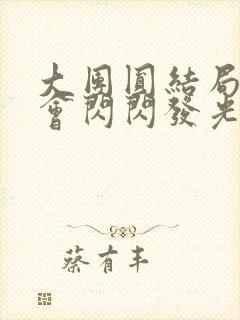 大團圓結局
會閃閃發光
蔡有丰